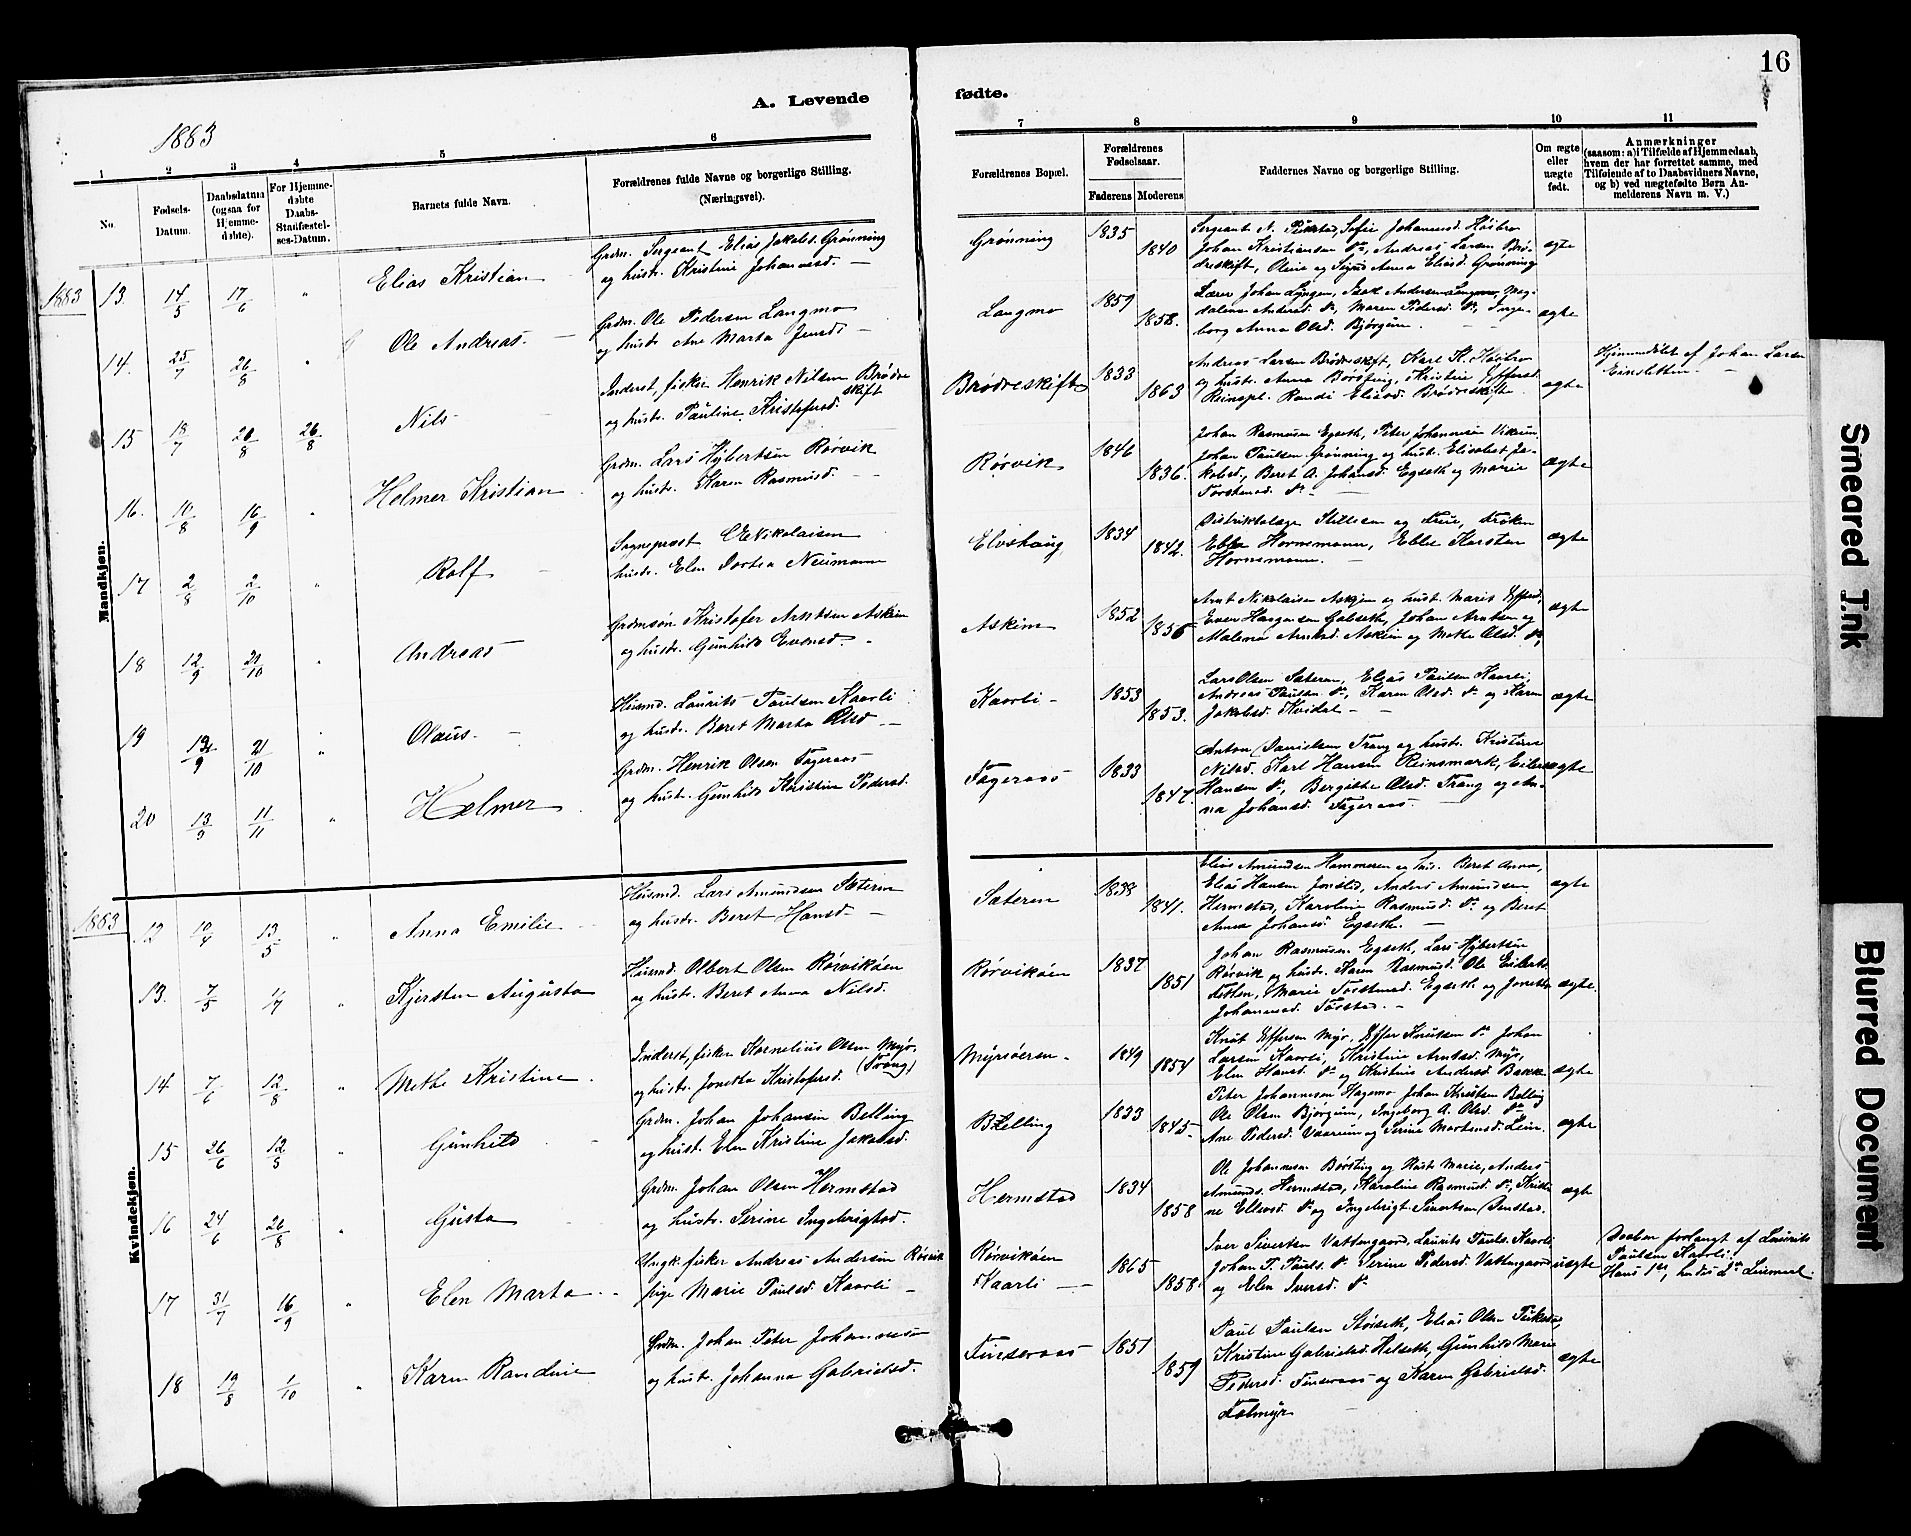 16
A. Levende
fødte.
1883
1
2
3
4
5
6
7
8
9
10
11
No.
Fødsels-
Datum.
Daabsdatum
(ogsaa for
Hjemme-
døbte).
For Hjemme-
døbte
Daabs-
Stadfæstel-
ses-Datum.
Barnets fulde Navn.
Forældrenes fulde Navne og borgerlige Stilling.
(Næringsvei).
Forældrenes Bopæl.
Forældrenes
Fødselsaar.
Faderens
Moderens
Faddernes Navne og borgerlige Stilling.
Om ægte
eller
uægte
født.
Anmærkninger
(saasom: a) i Tilfælde af Hjemmedaab,
hvem der har forrettet samme, med
Tilføiende af to Daabsvidners Navne,
og b) ved uægtefødte Børn An-
melderens Navn m. V.)
Mandkjøn.
1883
13. 14/5 17/6 " Elias Kristian
Grdm. Sergeant Elias Jakobs. Grønning
og hustr. Kristine Johannesd. —
Grønning 1835 1840
Sergeant N. Fikstad, Sofie Johannesd. Høibro
Johan Kristiansen Do, Andreas Larsen Brø-
dreskift, Oline og Anna Eliasd. Grønning
ægte
14. 25/7 26/8 " Ole Andreas —
Grdm. Ole Pedersen Langmo
og hustr. Ane Marta Jensd. —
Langmo 1859 1858.
Lærer Johan Lyngen, Isak Andersen Langmo, Mag-
dalena Andersd. Do, Maren Pedersd. Do, Inge-
borg Anna Olsd. Bjørgum. —
ægte
15 18/7 26/8 26/8 Nils —
Inderst, fisker Henrik Nilsen Brødre
skift
og hustr. Pauline Kristofersd.
Brødreskift 1833 1863
Andreas Larsen Brødreskift, Karl K. Høibro
og hustr. Anna Børsting, Kristine Effersd.
Reinspl. Randi Eliasd. Brødreskift
ægte
Hjemmedøbt af Johan Larsen
Einsletten —
16. 10/8 16/9 " Helmer Kristian
Grdm. Lars Hybertsen Rørvik
og hustr. Karen Rasmusd. —
Rørvik 1846 1836.
Johan Rasmusen Egseth, Peter Johannesen
Johan Paulsen Grønning og hustr. Elisabet Ja-
kobsd., Beret A. Johansd. Egseth og Marie
Torstensd. Do —
ægte
17 2/8 2/10 " Rolf —
Sogneprest Nikolaisen
hustr. Elen Dortea Neumann
Elvshaug 1834 1842.
Distriktslæge og Frue, Frøken
Ebba Hornemann, Ebbe Karsten
Hornemann. —
ægte
18 12/9 21/10 " Andreas
Grdmsøn Kristofer Arntsen Askim
og hustr. Gunhild Evensd. -
Askim 1852 1856
Arnt Nikolaisen Askjem og hust. Marit Effersd.,
Even Haagensen Galseth, Johan Arntsen og
Malena Arntsd. Askim og Mette Olsd. Do,
ægte
19 19/9 21/10 " Olaus. —
Husmd. Laurits Paulsen Kaarli
og hustr. Beret Marta Olsd —
Kaarli - 1853 1853.
Lars Olsen Sæteren, Elias Paulsen Kaarli,
Andreas Paulsen Do, Karen Olsd. Do og Karen
Jakobsd. Kvidal —
ægte
20 13/9 11/11 " Helmer
Grdm. Henrik Olsen Fageraas
og hustr. Gunhild Kristine Pedersd.
Fageraas 1833 1847.
Anton Danielsen Trang og hustr. Kristine
Nilsd. Karl Hansen Reinsmark, Eilert
Hansen Do, Bergitte Olsd. Trang og An-
na Johansd. Fageraas —
ægte
Kvindekjøn.
1883
12 10/4 13/5 " Anna Emilie
Husmd. Lars Amundsen Sæteren
og hustr. Beret Hansd —
Sæteren 1838 1841.
Elias Amundsen Hammeren og hus. Beret Anna,
Elias Hansen Jonstad, Anders Amundsen
Hermstad, Karoline Rasmusd. Do og Beret
Anna Johansd. Egseth. —
ægte
13. 7/5 1/7 " Kjersten Augusta
Husmd. Olbert Olsen Rørvikøen
og hustr. Beret Anna Nilsd.
Rørvikøen 1837 1851
Johan Rasmusen Egseth, Lars Hybertsen
Rørvik og hustr. Karen Rasmusd. Ole Eilerts.
Fetten, Marie Torstensd. Egseth og Jonetta
Johannesd. Torstad. -
ægte.
14 7/6 12/8 " Mette Kristine
Inderst, fisker Kornelius Olsen Myr.
(Trang)
og hustr. Jonetta Kristofersd.
Myrsøeren - 1849 1854
Knut Effersen Myr, Effer Knutsen Do Johan
Larsen Kaarli, Kristine Arntsd. Myr,
Elen Hansd. Do og Kristine Andersd. Bakken
ægte
15 26/6 12/8 " Gunhild
Grdm. Johan Johansen Belling
og hust. Elen Kristine Jakobsd.
Belling 1833 1845-
Peter Johannesen Hagemo Johan Kristen Belling
Ole Olsen Bjørgum, Ingeborg A. Olsd. Do
Ane Pedersd. Vaarum og Serine Mortensd. Lein.
ægte
16 24/6 26/8 " Gusta
Grdm. Johan Olsen Hermstad
og hustr. Serine Ingebrigtsd.
Hermstad 1834 1858
Ole Johannesen Børsting og Hustr. Marie, Anders
Amunds. Hermstad, Karoline Rasmusd. Do, Kristi-
ne Ellevsd. Do og Ingebrigt Sivertsen
ægte
17 31/7 16/9 " Elen Marta
Ungk. fisker Andreas Andersen Rørvik
pige Marie Paulsd. Kaarli —
Rørvikøen
Kaarli — 1865 1858
Iver Sivertsen Vattengaard, Laurits Pauls. Kaarli
Johan P. Pauls. Do Serine Pedersd. Vattengaard
og Elen Iversd. Do
uægte
Daaben forlangt af Laurits
Paulsen Kaarli.
Hans 1ste, hendes 2det Leiermaal.
18 19/8 1/10 " Karen Randine
Grdm. Johan Peter Johannesen
og hust. Johanna Gabrielsd.
Finseraas 1851 1859
Paul Paulsen Støiseth, Elias Olsen Fikstad,
Kristine Gabrielsd. Helseth, Gunhild Marie
Pedersd. Finseraas og Karen Gabrielsd.
Falmyr —
ægte
Smeared Ink
Blurred Document